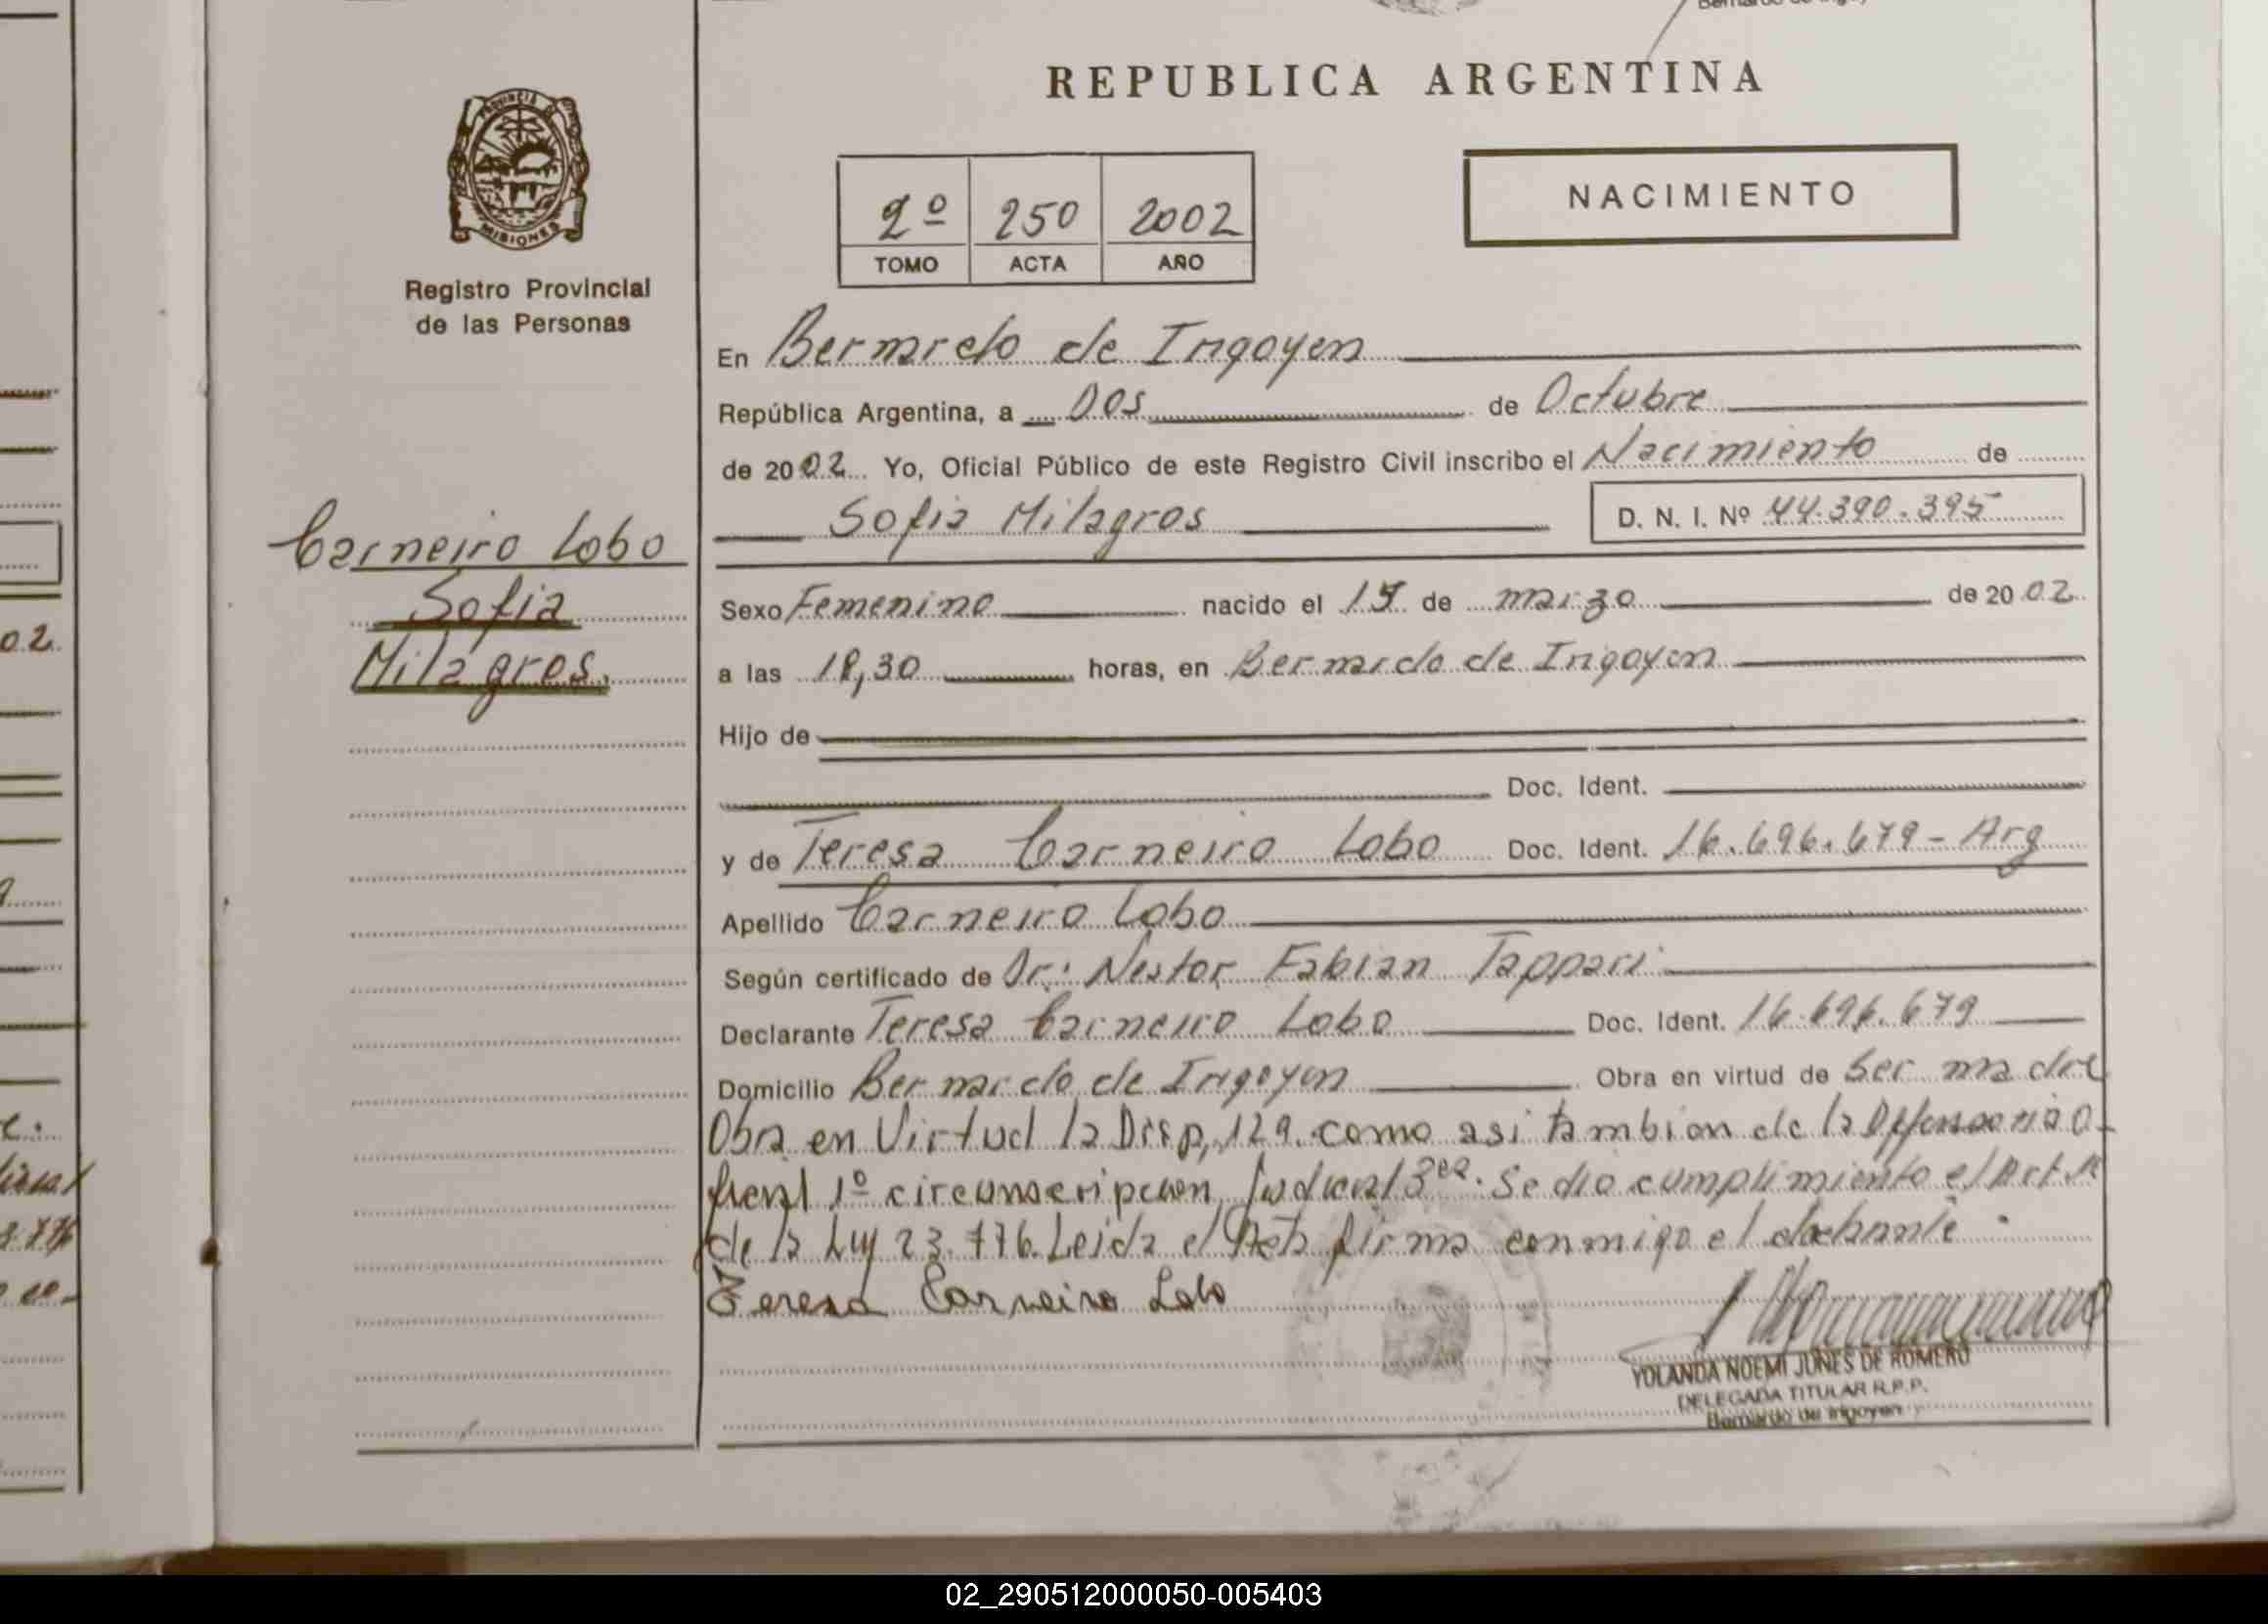 REPUBLICA ARGENTINA
PROVINCIA DE
MISIONES
Registro Provincial
de las Personas
2º 250 2002
TOMO ACTA AÑO
NACIMIENTO
En Bernardo de Irigoyen
República Argentina, a Dos de Octubre
de 2002 Yo, Oficial Público de este Registro Civil inscribo el Nacimiento de
Sofia Milagros D. N. I. Nº 44.390.395
Carneiro Lobo
Sofia
Milagros.
Sexo Femenino nacido el de marzo de 2002
a las 18,30 horas, en Bernardo de Irigoyen
Hijo de
Doc. Ident.
y de Teresa Carneiro Lobo Doc. Ident. 16.696.679 - Arg
Apellido Carneiro Lobo
Según certificado de Dr: Nestor Fabian Tappari
Declarante Teresa Carneiro Lobo Doc. Ident. 16.696.679
Domicilio Bernardo de Irigoyen Obra en virtud de Ser madre
Obra en Virtud la Disp, 129. como asi tambien de la Defensoria O-
ficial 1º circunscripcion Judicial 3ra. Se dio cumplimiento el Art.
de la Ley 23.776. Leida el Acta firma conmigo el
Teresa Carneiro Lobo
YOLANDA NOEMI JUNES DE ROMERO
DELEGADA TITULAR R.P.P.
Bernardo de Irigoyen
02_290512000050-005403